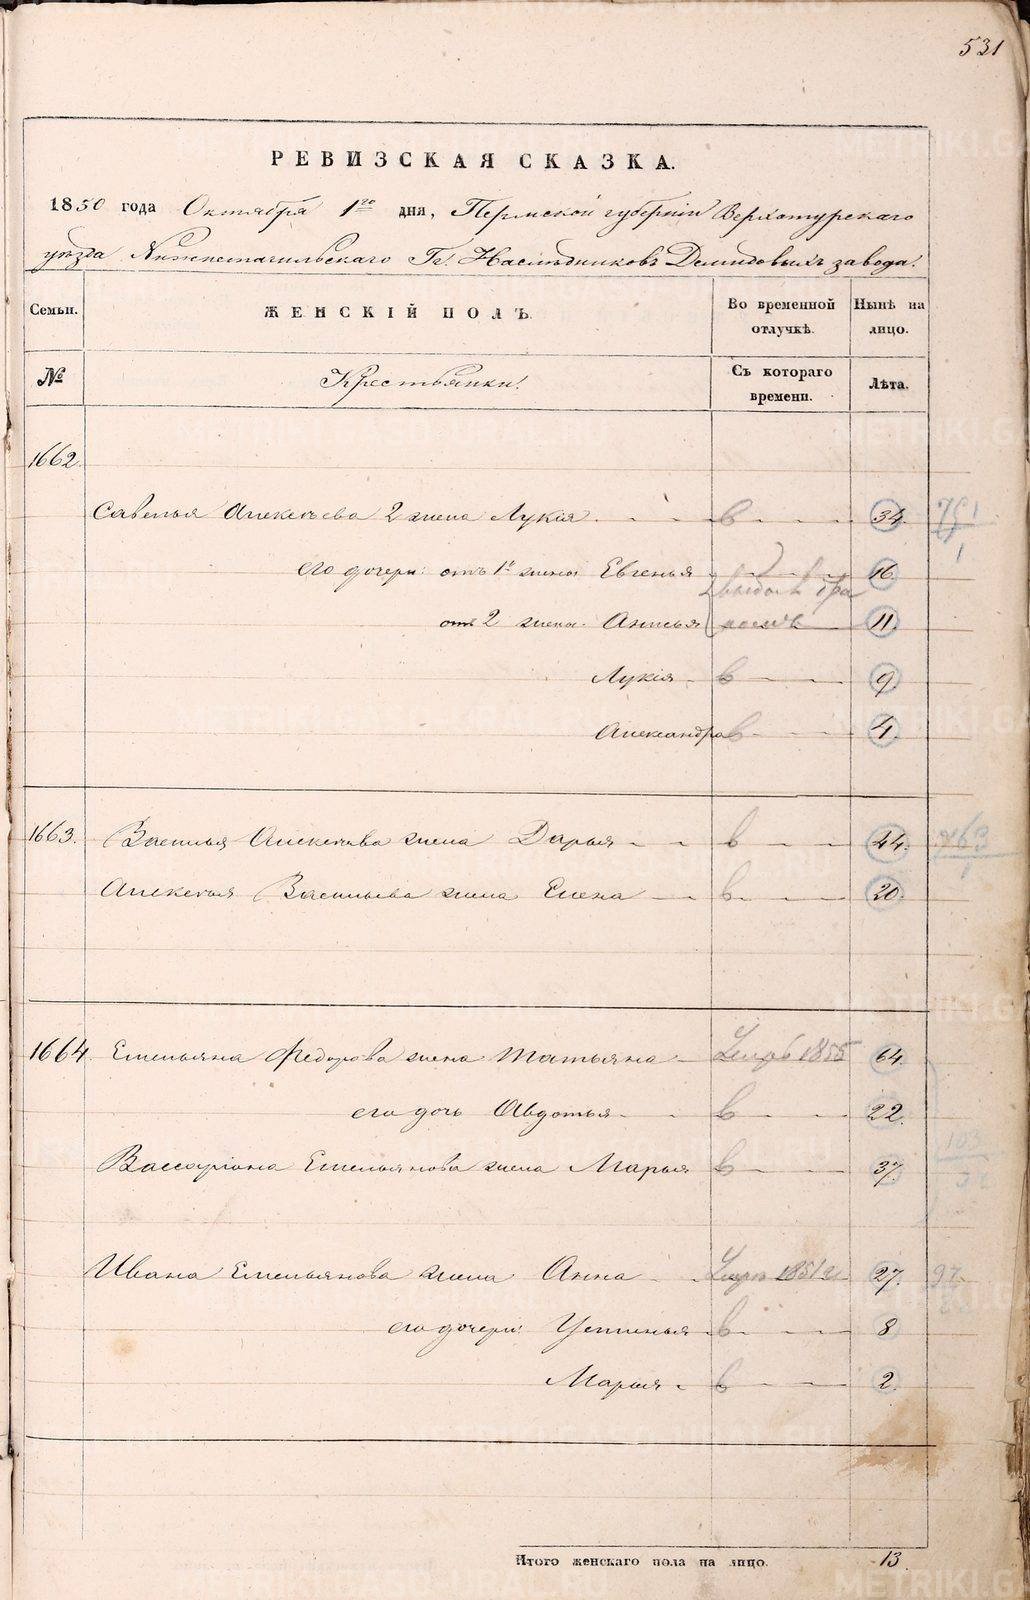 531
РЕВИЗСКАЯ СКАЗКА.
1850 года Октября 1го дня, Пермской губерніи Верхотурскаго
уѣзда Нижнетагильскаго Гг. Наслѣдниковъ Демидовыхъ завода.
Семьи. ЖЕНСКІЙ ПОЛЪ Во временной отлучкѣ. Нынѣ на лицо.
№ Крестьянки. Съ котораго времени. Лѣта.
1662.
Савелья Алексѣева 2 жена Лукія в 34
его дочери: отъ 1й жены Евгенья 16
отъ 2 жены Анисья 11
Лукія в 9
Александра в 4
1663. Василья Алексѣева жена Дарья в 44. 763
1
Алексѣя Васильева жена Елена в 20.
1664. Емельяна Федорова жена Татьяна 1855 64.
его дочь Авдотья в 22.
Виссаріона Емельянова жена Марья в 37. 103
Ивана Емельянова жена Анна 1851 27. 97
его дочери: Устинья в 8
Марья в 2.
Итого женскаго пола на лицо. 13
METRIKI.GASO-URAL.RU